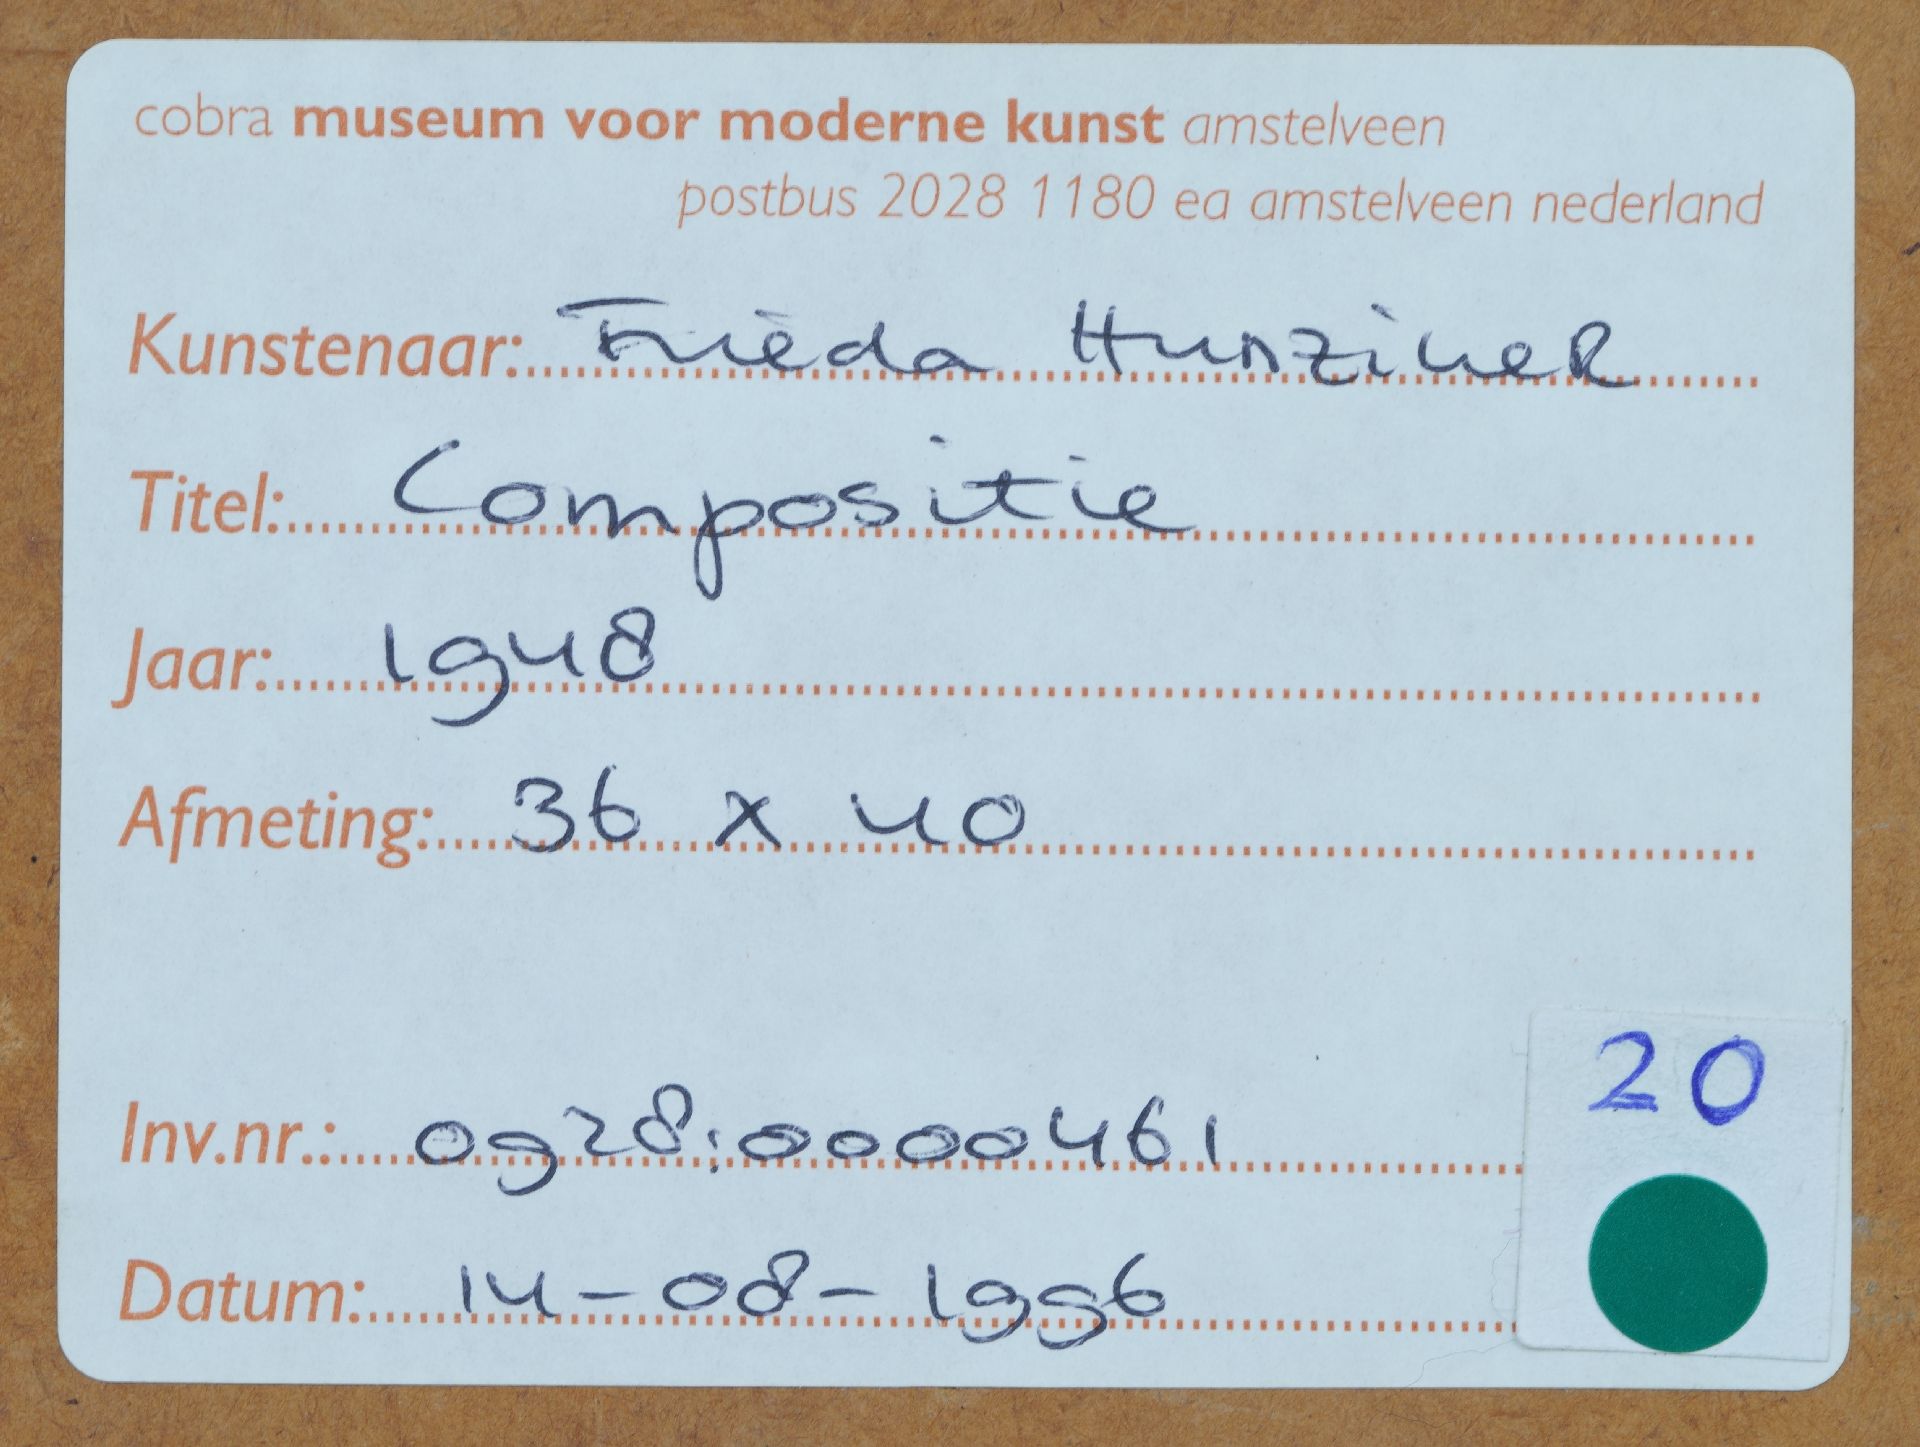 cobra museum voor moderne kunst amstelveen
postbus 2028 1180 ea amstelveen nederland
Kunstenaar: Frièda Hunziker
Titel: Compositie
Jaar: 1948
Afmeting: 36 x 40
20
Inv.nr.: 0928:0000461
Datum: 14-08-1996